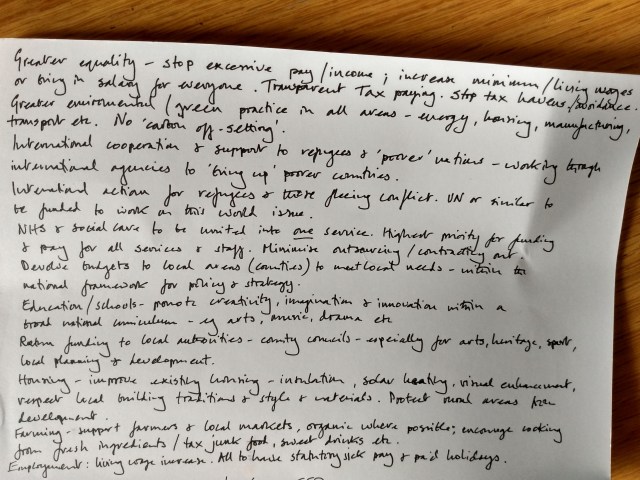 Greater equality - stop excessive pay/income; increase minimum/living wages
or bring in salary for everyone. Transparent Tax paying. Stop tax havens/avoidance.
Greater environmental/green practice in all areas - energy, housing, manufacturing,
transport etc. No 'carbon off-setting'.
International cooperation & support to refugees & 'poorer' nations - working through
international agencies to 'bring up' poorer countries.
International action for refugees & those fleeing conflict. UN or similar to
be funded to work on this world issue.
NHS & social care to be united into one service. Highest priority for funding
& pay for all services & staff. Minimise outsourcing/contracting out.
Devolve budgets to local areas (counties) to meet local needs - within the
national framework for policy & strategy.
Education/schools - promote creativity, imagination & innovation within a
broad national curriculum - eg arts, music, drama etc
Return funding to local authorities - county councils - especially for arts, heritage, sport,
local planning & development.
Housing - improve existing housing - insulation, solar heating, visual enhancement,
respect local building traditions & style & materials. Protect rural areas from
development.
Farming - support farmers & local markets, organic where possible; encourage cooking
from fresh ingredients/tax junk food, sweet drinks etc.
Employment: living wage increase. All to have statutory sick pay & paid holidays.